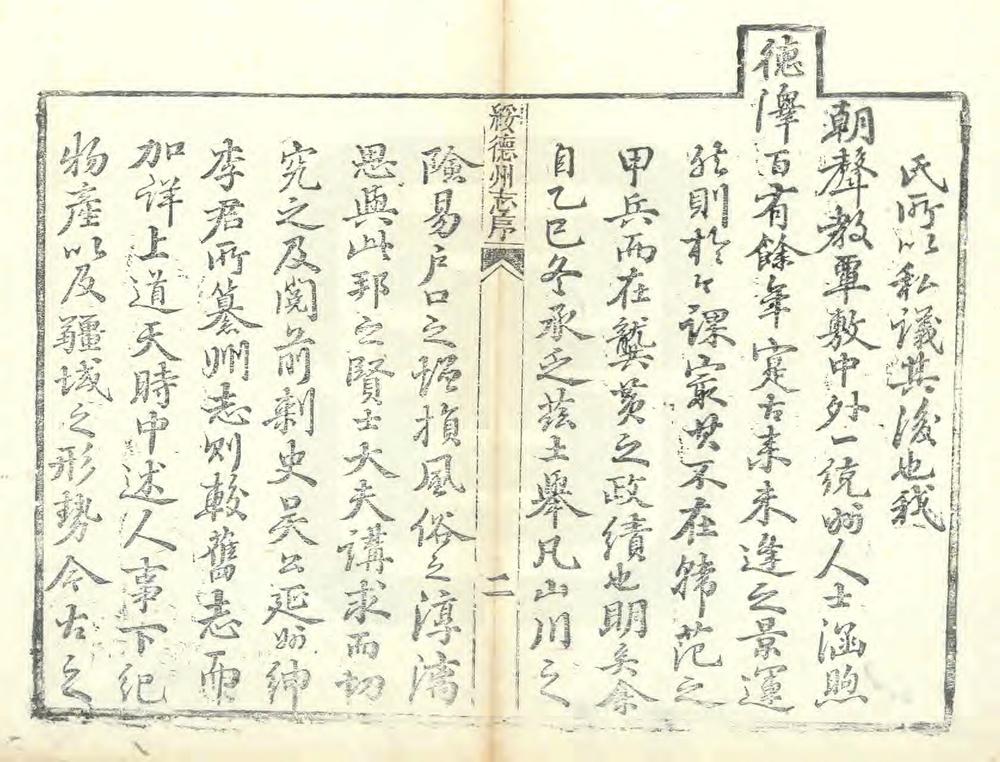 氏所以私議其後也我
朝聲教覃敷中外一統州人士涵煦
德澤百有餘年寔古来未逢之景運
然則於今課最其不在韓范之
甲兵而在龔黃之政績也明矣余
自乙巳冬承乏茲土舉凡山川之
綏德州志序
二
險易户口之增損風俗之淳漓
思與此邦之賢士大夫講求而切
究之及閱前刺史吳公延州紳
李君所纂州志则較舊志而
加詳上道天時中述人事下紀
物產以及疆域之形勢今古之